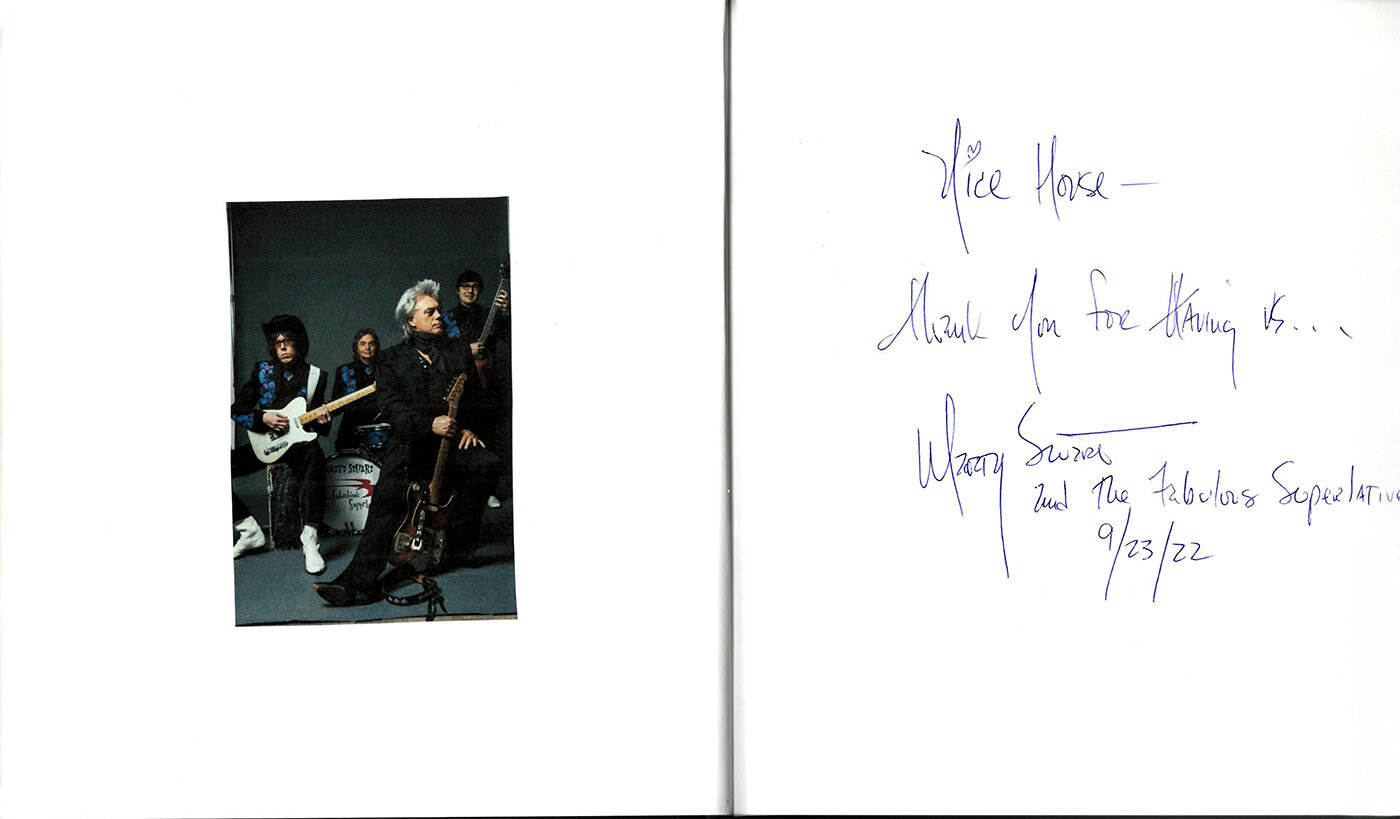 MARTY STUART
Fabulous
Superl
Nice House —
Thank You For Having us...
Marty Stuart
and The Fabulous Superlative
9/23/22